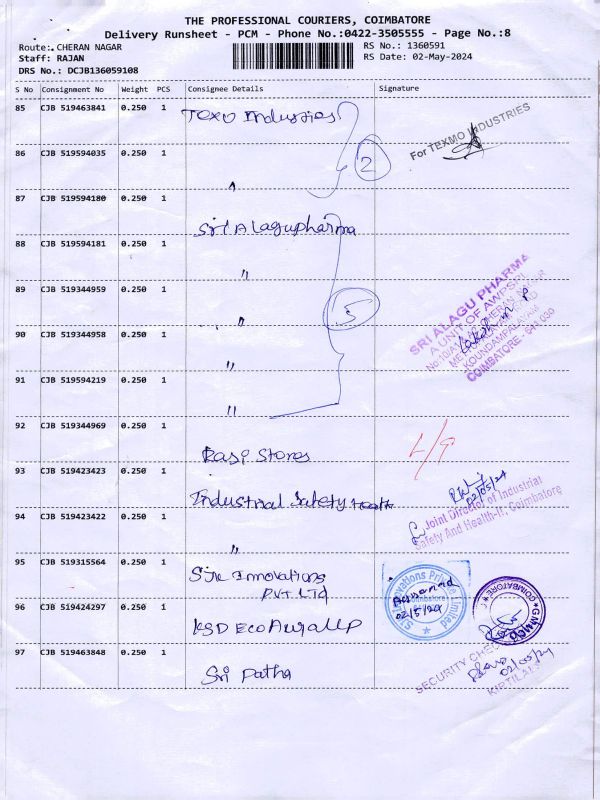 THE PROFESSIONAL COURIERS, COIMBATORE
Delivery Runsheet - PCM - Phone No.:0422-3505555 - Page No.:8
Route: CHERAN NAGAR
RS No.: 1360591
Staff: RAJAN
RS Date: 02-May-2024
DRS No.: DCJB136059108
S No Consignment No Weight PCS Consignee Details Signature
85 CJB 519463841 0.250 1 Texo Industries
For TEXMO INDUSTRIES
86 CJB 519594035 0.250 1 "
2
87 CJB 519594180 0.250 1 Sri Alagupharma
88 CJB 519594181 0.250 1 "
89 CJB 519344959 0.250 1 "
5
SRI ALAGU PHARMA
A UNIT OF AWPSRI
KOUNDAMPALAYAM
COIMBATORE - 641 030
90 CJB 519344958 0.250 1 "
91 CJB 519594219 0.250 1 "
92 CJB 519344969 0.250 1 Rasi Stores
93 CJB 519423423 0.250 1 Industrial Safety Health
02/05/24
Joint Director of Industrial
Safety And Health-II, Coimbatore
94 CJB 519423422 0.250 1 "
95 CJB 519315564 0.250 1 SJK Innovations
PVT LTD
Innovations Private Limited
Coimbatore
02/5/24
96 CJB 519424297 0.250 1 KSD Eco Aura LLP
COIMBATORE
97 CJB 519463848 0.250 1 Sri Patha
SECURITY CHECK
02/05/24